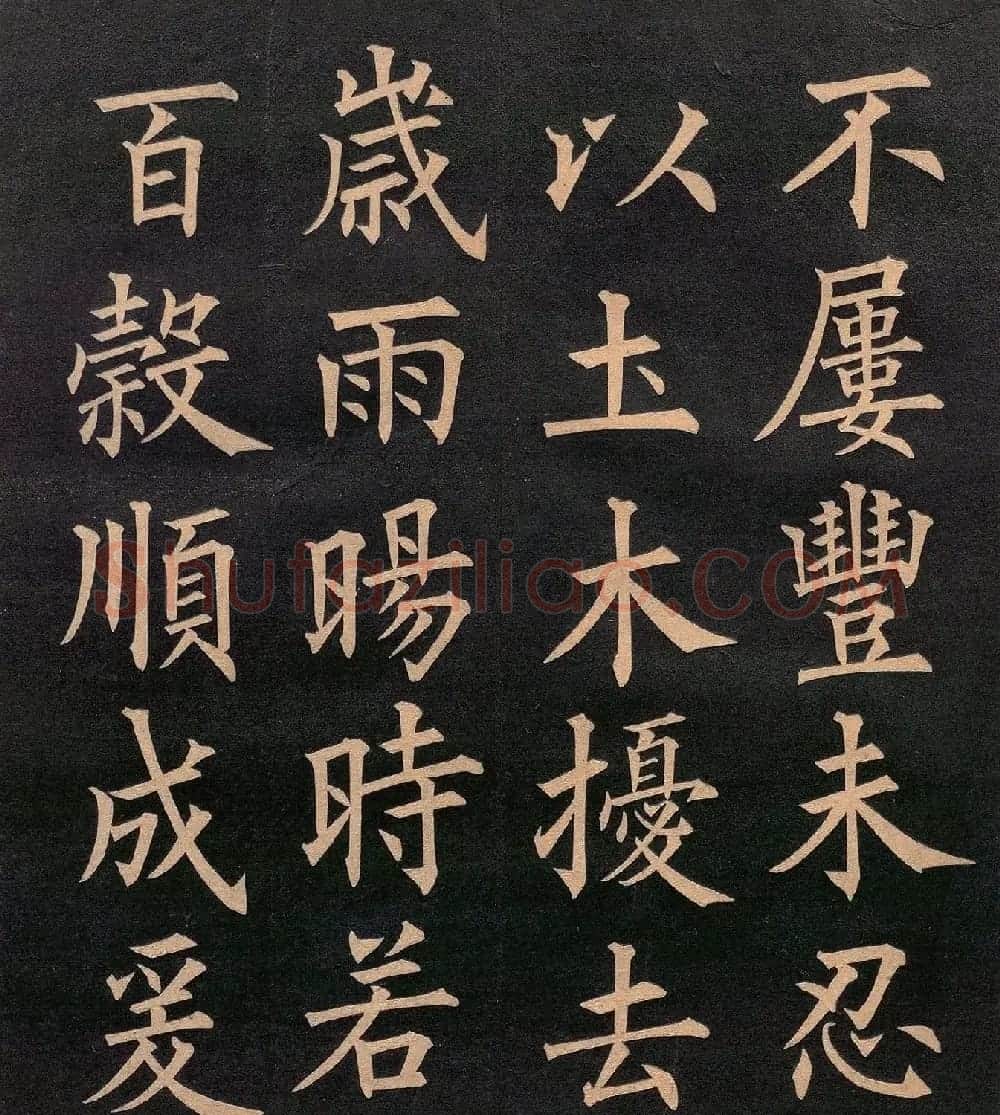 不屢豐未忍
以土木擾去
歲雨暘時若
百穀順成爰
Shufaziliao.COM